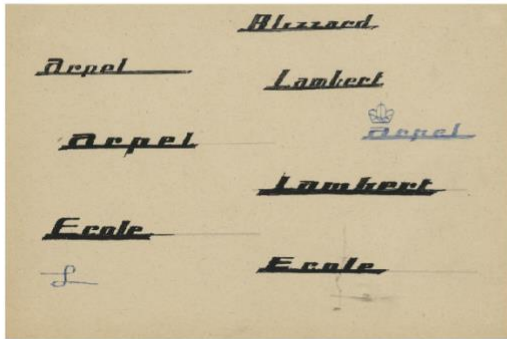 Blizzard
Arpel
Lambert
Arpel
Arpel
Lambert
Ecole
Ecole